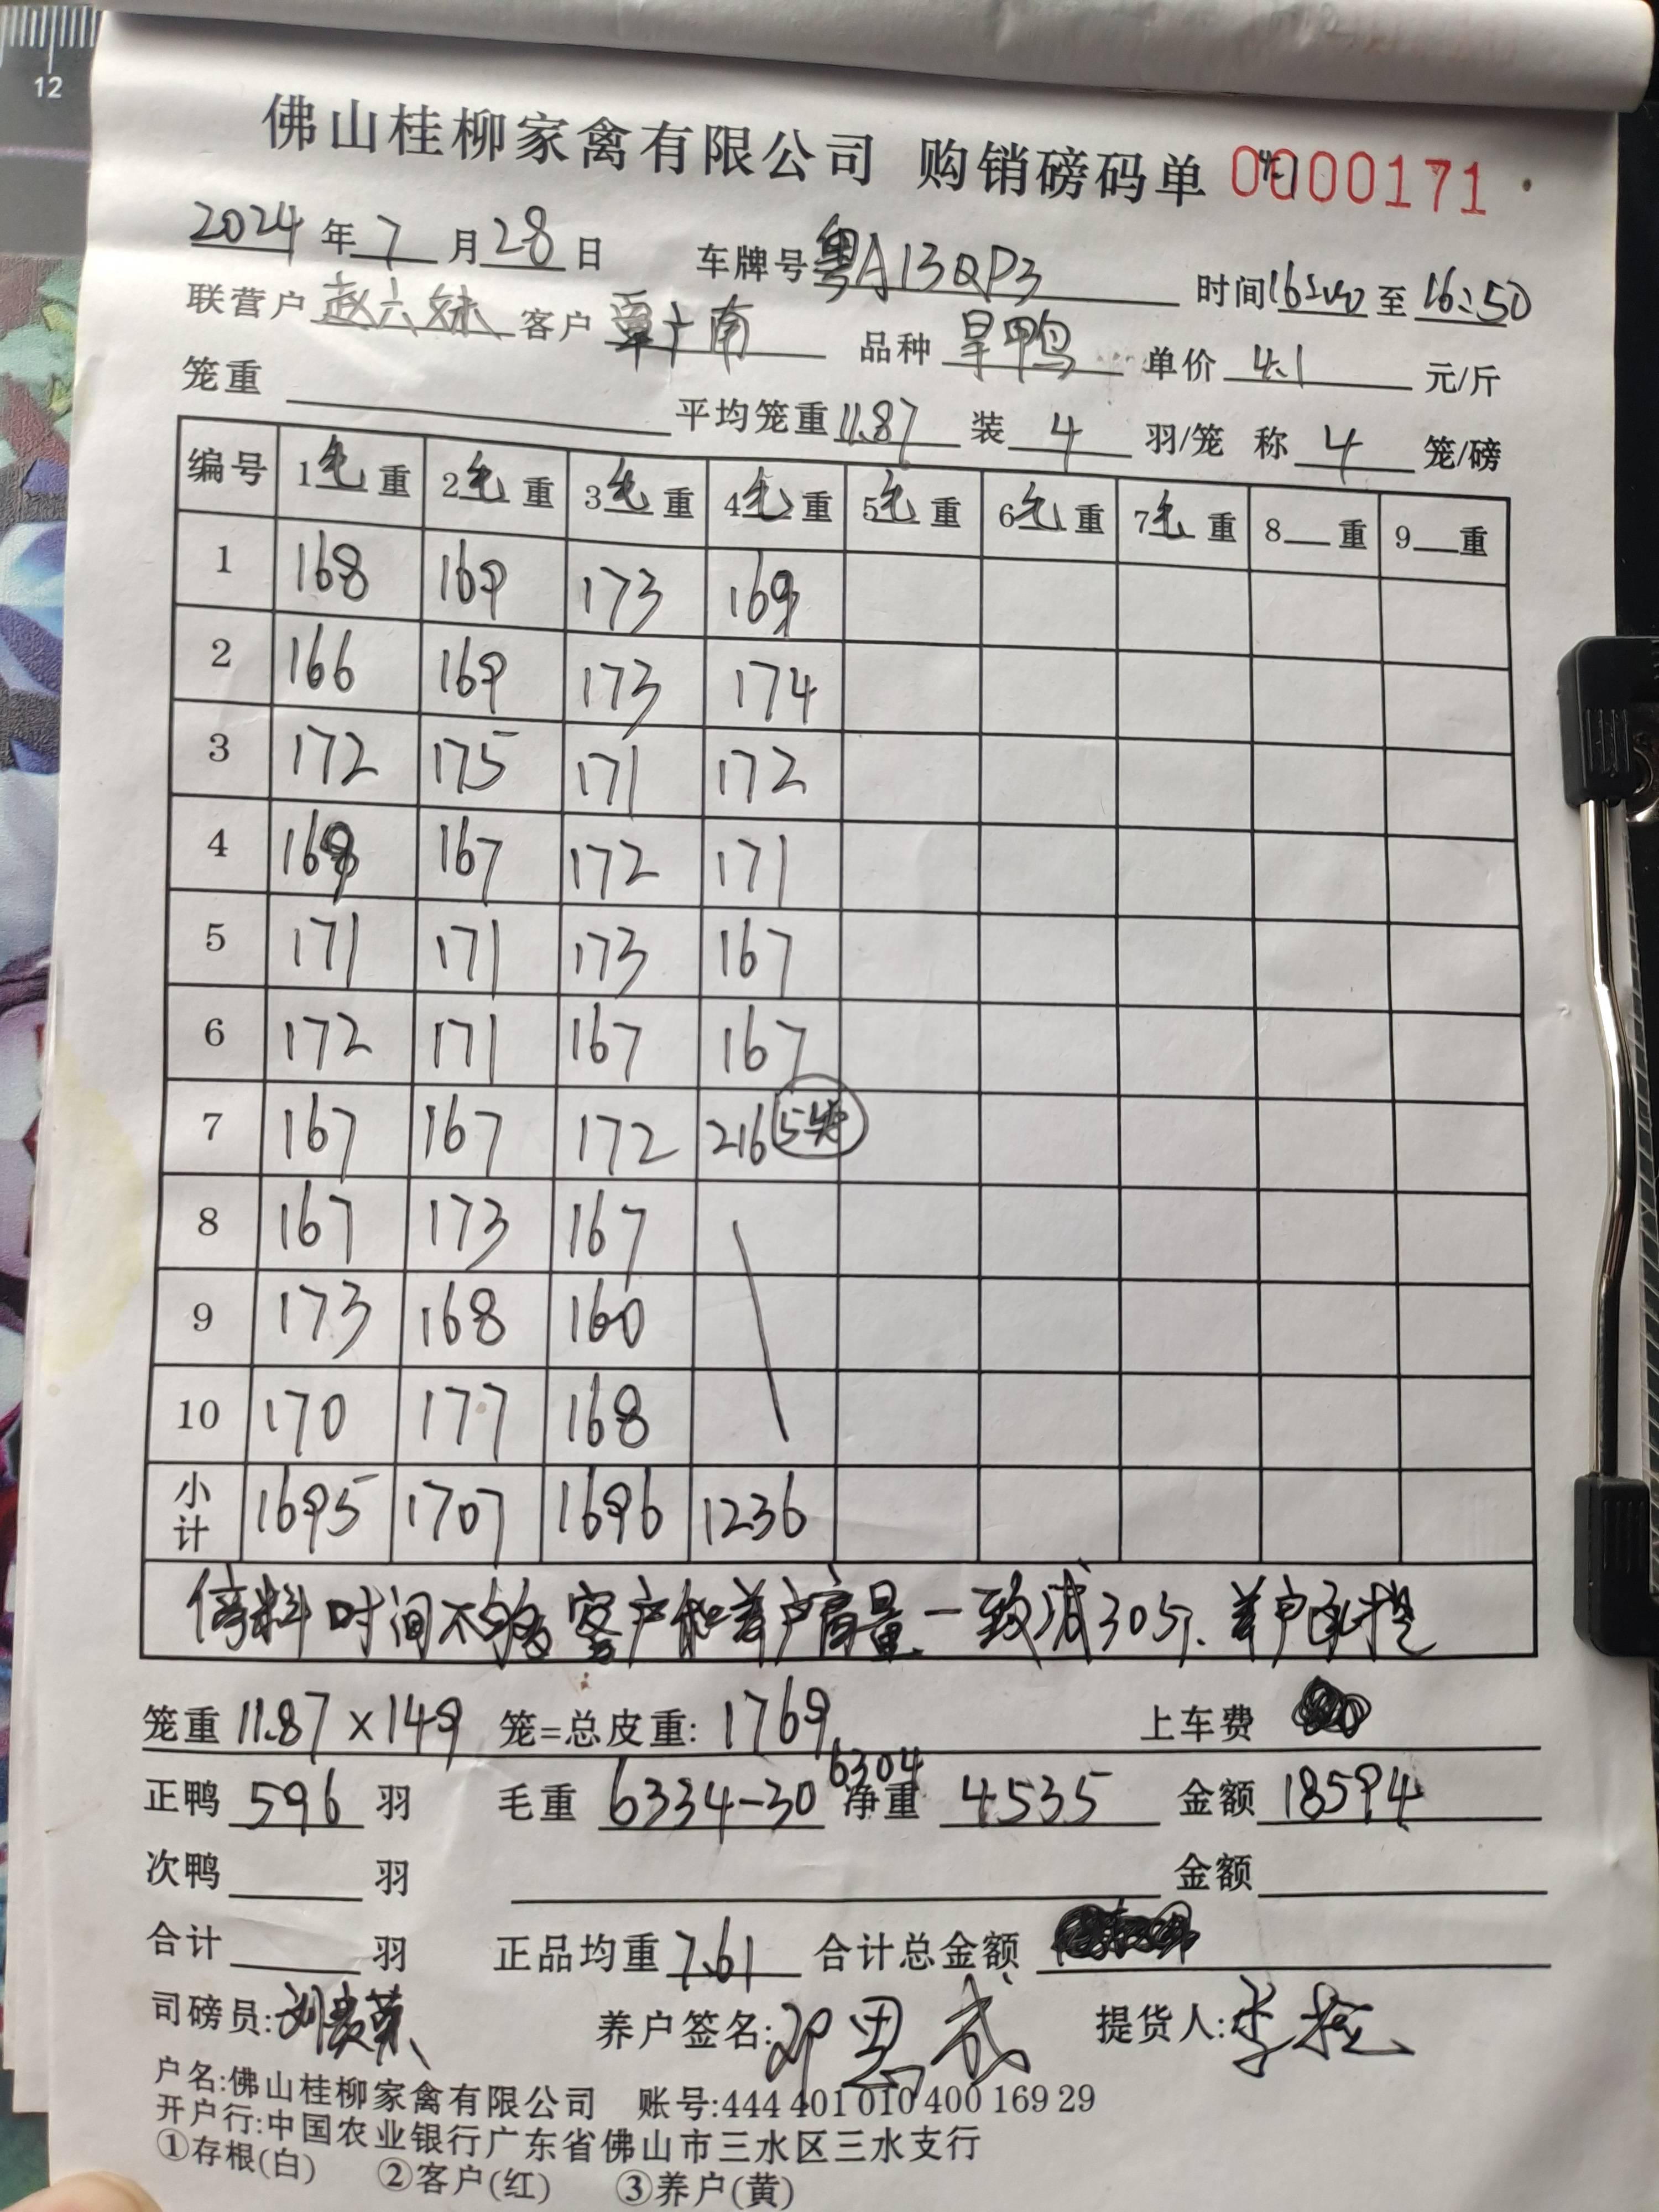 12
佛山桂柳家禽有限公司 购销磅码单 0000171
2024 年 7 月 28 日 车牌号 粤A13QP3 时间 16:00 至 16:50
联营户 赵六妹 客户 覃广南 品种 旱鸭 单价 4.1 元/斤
笼重 平均笼重 11.87 装 4 羽/笼 称 4 笼/磅
编号 1毛重 2毛重 3毛重 4毛重 5毛重 6毛重 7毛重 8__重 9__重
1 168 169 173 169
2 166 169 173 174
3 172 175 171 172
4 169 167 172 171
5 171 171 173 167
6 172 171 167 167
7 167 167 172 216 5笼
8 167 173 167
9 173 168 160
10 170 177 168
小计 1695 1707 1696 1236
停料时间不够 客户和养户商量一致减30斤. 养户承担
笼重 11.87×149 笼=总皮重: 1769 上车费
正鸭 596 羽 毛重 6334-30 6304 净重 4535 金额 18594
次鸭 羽 金额
合计 羽 正品均重 7.61 合计总金额
司磅员: 养户签名: 邓思武 提货人: 李
户名:佛山桂柳家禽有限公司 账号:444 401 010 400 169 29
开户行:中国农业银行广东省佛山市三水区三水支行
①存根(白) ②客户(红) ③养户(黄)